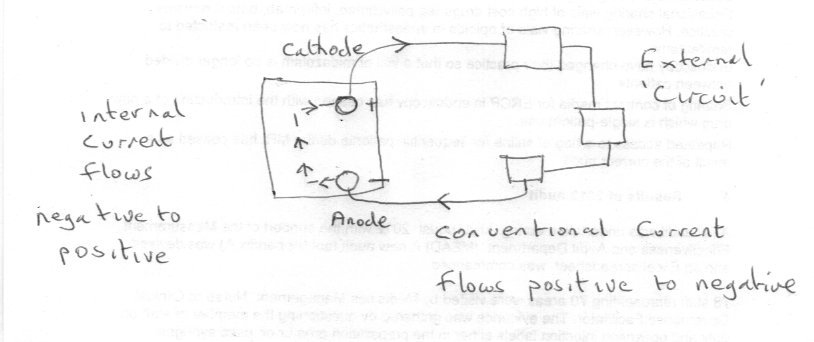 Cathode
External
'Circuit'
+
Internal
Current
flows
negative to
positive
-
Anode
Conventional Current
flows positive to negative